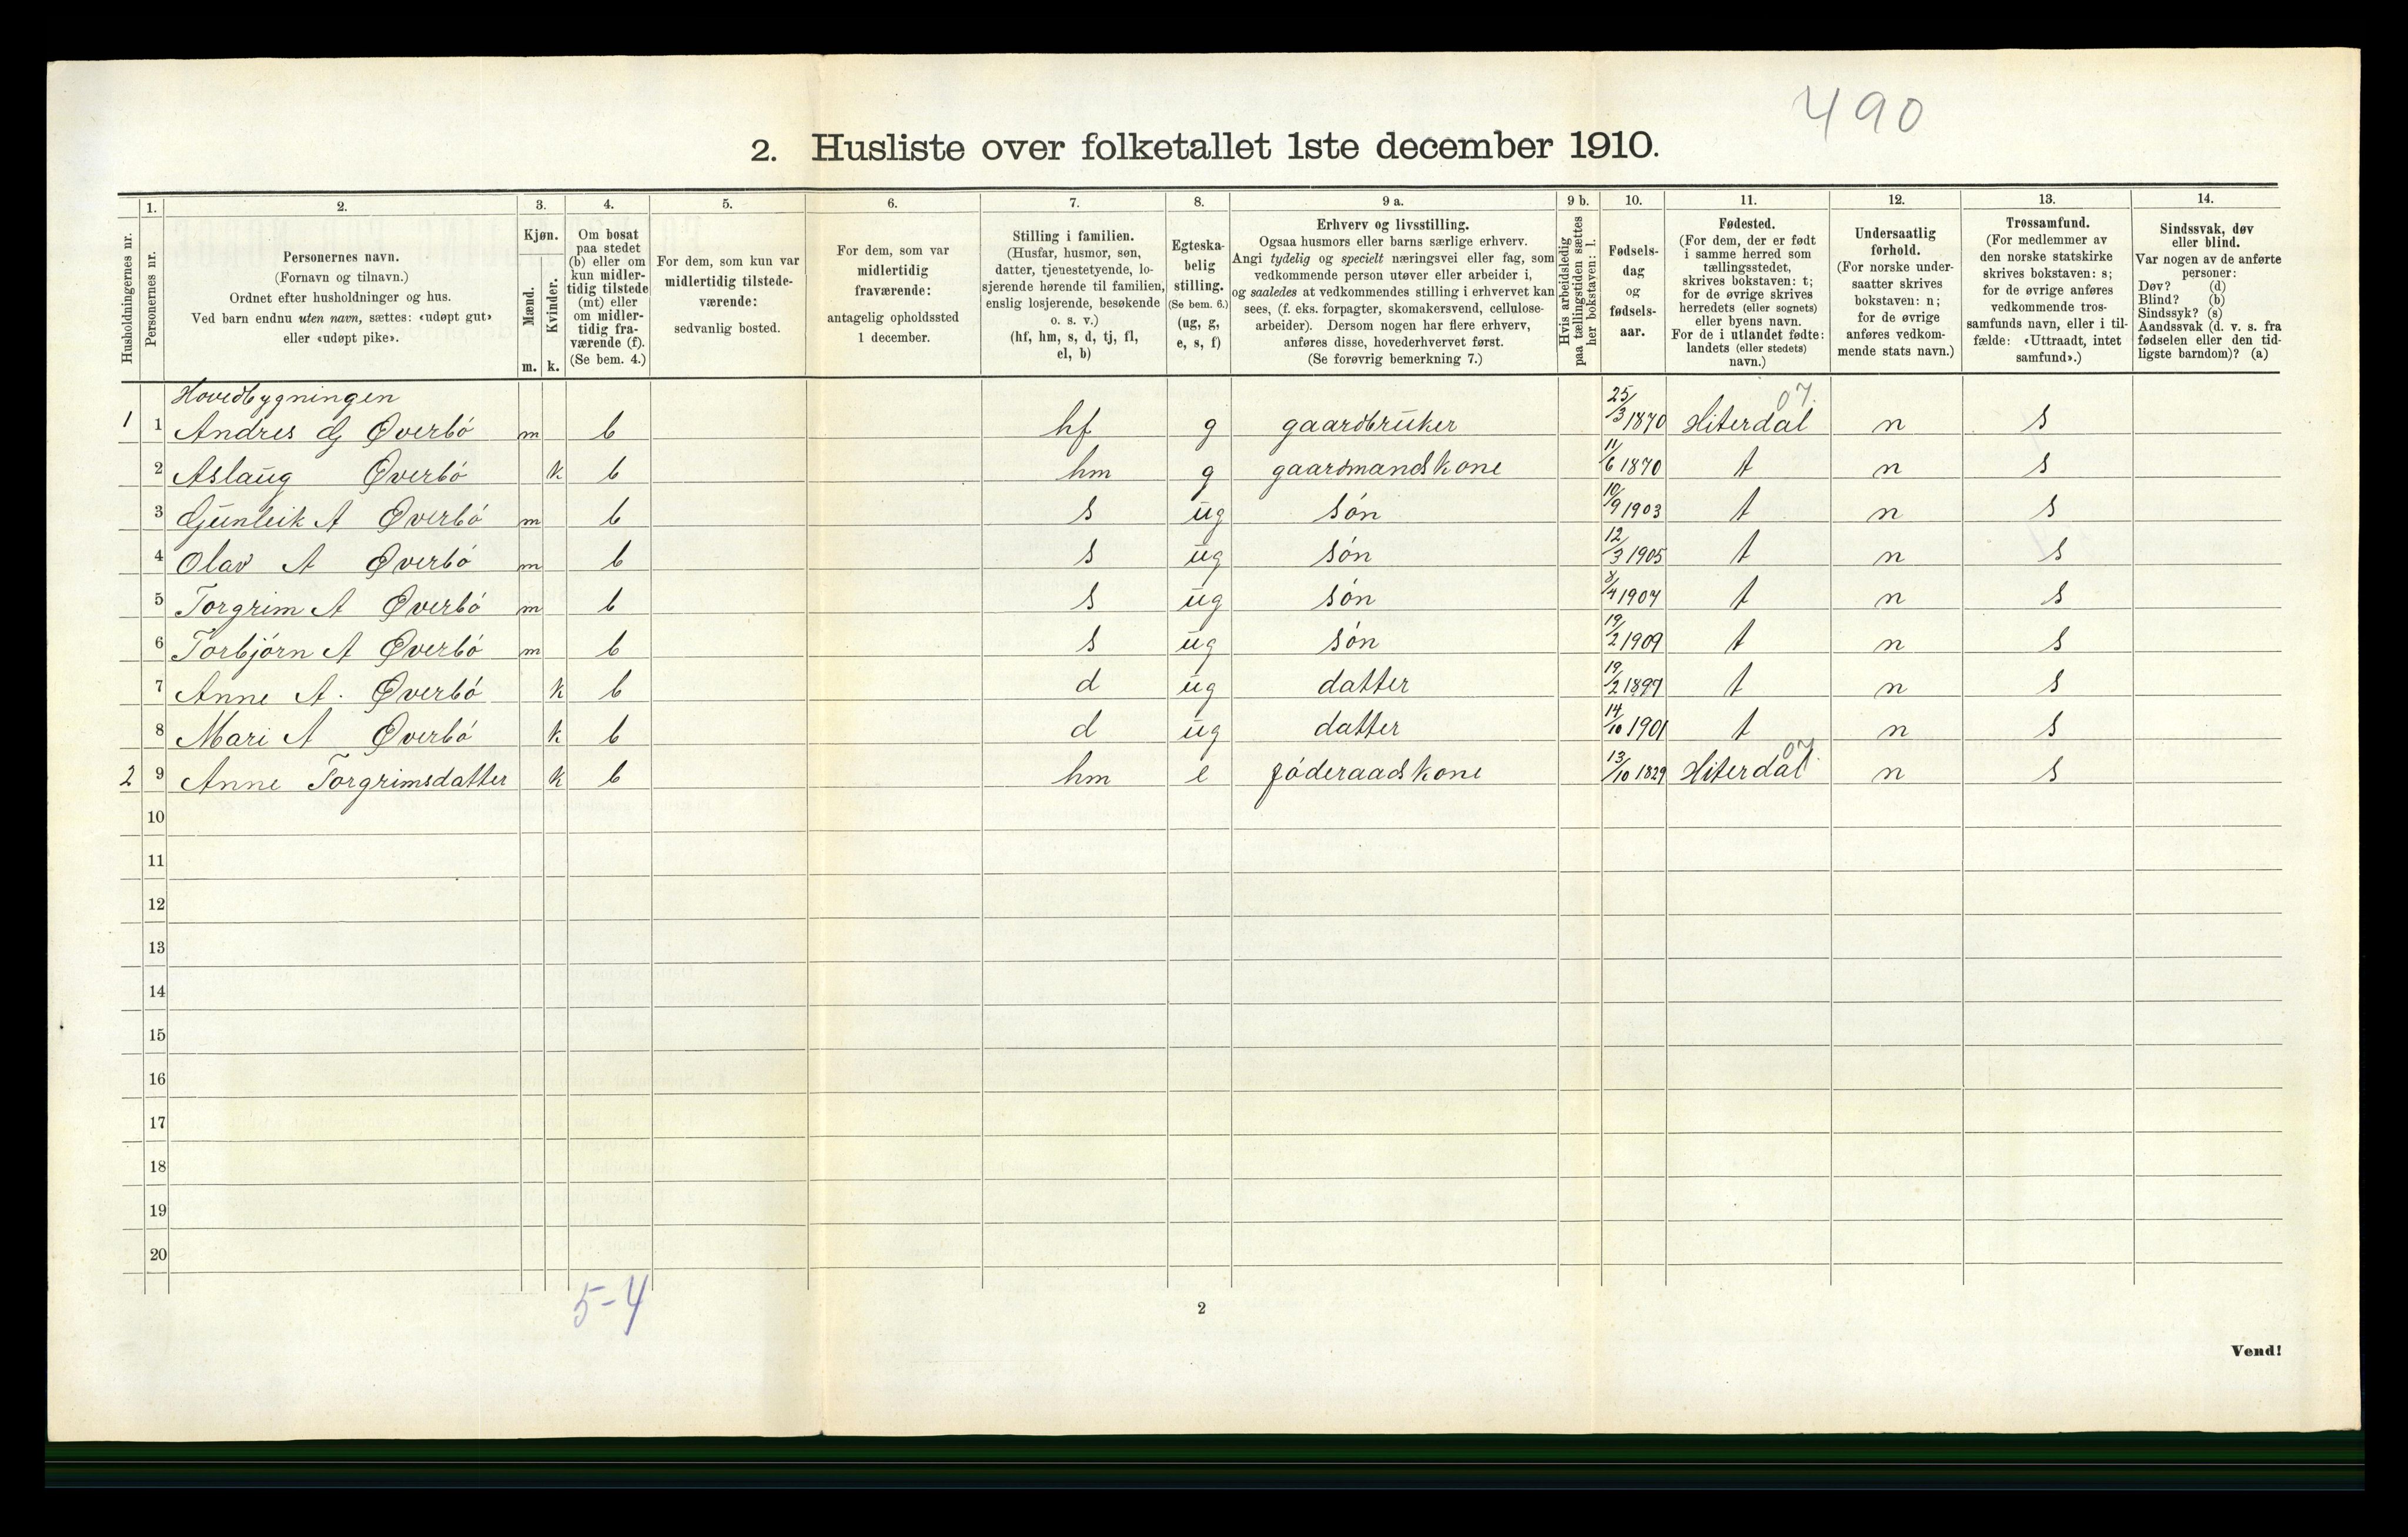 490
2. Husliste over folketallet 1ste december 1910.
Husholdningernes nr.
1.
Personernes nr.
2.
Personernes navn.
(Fornavn og tilnavn.)
Ordnet efter husholdninger og hus.
Ved barn endnu uten navn, sættes: «udøpt gut»
eller «udøpt pike».
3.
Kjøn.
Mænd.
Kvinder.
m. k.
4.
Om bosat
paa stedet
(b) eller om
kun midler-
tidig tilstede
(mt) eller
om midler-
tidig fra-
værende (f).
(Se bem. 4.)
5.
For dem, som kun var
midlertidig tilstede-
værende:
sedvanlig bosted.
6.
For dem, som var
midlertidig
fraværende:
antagelig opholdssted
1 december.
7.
Stilling i familien.
(Husfar, husmor, søn,
datter, tjenestetyende, lo-
sjerende hørende til familien,
enslig losjerende, besøkende
o. s. v.)
(hf, hm, s, d, tj, fl,
el, b)
8.
Egteska-
belig
stilling.
(Se bem. 6.)
(ug, g,
e, s, f)
9 a.
Erhverv og livsstilling.
Ogsaa husmors eller barns særlige erhverv.
Angi tydelig og specielt næringsvei eller fag, som
vedkommende person utøver eller arbeider i,
og saaledes at vedkommendes stilling i erhvervet kan
sees, (f. eks. forpagter, skomakersvend, cellulose-
arbeider). Dersom nogen har flere erhverv,
anføres disse, hovederhvervet først.
(Se forøvrig bemerkning 7.)
9 b.
Hvis arbeidsledig
paa tællingstiden sættes
her bokstaven: l.
10.
Fødsels-
dag
og
fødsels-
aar.
11.
Fødested.
(For dem, der er født
i samme herred som
tællingsstedet,
skrives bokstaven: t;
for de øvrige skrives
herredets (eller sognets)
eller byens navn.
For de i utlandet fødte:
landets (eller stedets)
navn.)
12.
Undersaatlig
forhold.
(For norske under-
saatter skrives
bokstaven: n;
for de øvrige
anføres vedkom-
mende stats navn.)
13.
Trossamfund.
(For medlemmer av
den norske statskirke
skrives bokstaven: s;
for de øvrige anføres
vedkommende tros-
samfunds navn, eller i til-
fælde: «Uttraadt, intet
samfund».)
14.
Sindssvak, døv
eller blind.
Var nogen av de anførte
personer:
Døv? (d)
Blind? (b)
Sindssyk? (s)
Aandssvak (d. v. s. fra
fødselen eller den tid-
ligste barndom)? (a)
Hovedbygningen
1 1 Andres G Øverbó m b hf g gaardbruker 25/3 1870 Hiterdal 07. n s
2 Aslaug Øverbó k b hm g gaardmandskone 11/6 1870 t n s
3 Gunleik A Øverbó m b s ug són 10/9 1903 t n s
4 Olav A Øverbó m b s ug són 12/3 1905 t n s
5 Torgrim A Øverbó m b s ug són 8/4 1907 t n s
6 Torbjórn A Øverbó m b s ug són 19/2 1909 t n s
7 Anne A. Øverbó k b d ug datter 19/2 1897 t n s
8 Mari A Øverbó k b d ug datter 14/10 1901 t n s
2 9 Anne Torgrimsdatter k b hm e fóderaadskone 13/10 1829 Hiterdal 07 n s
10
11
12
13
14
15
16
17
18
19
20
5-4
2
Vend!